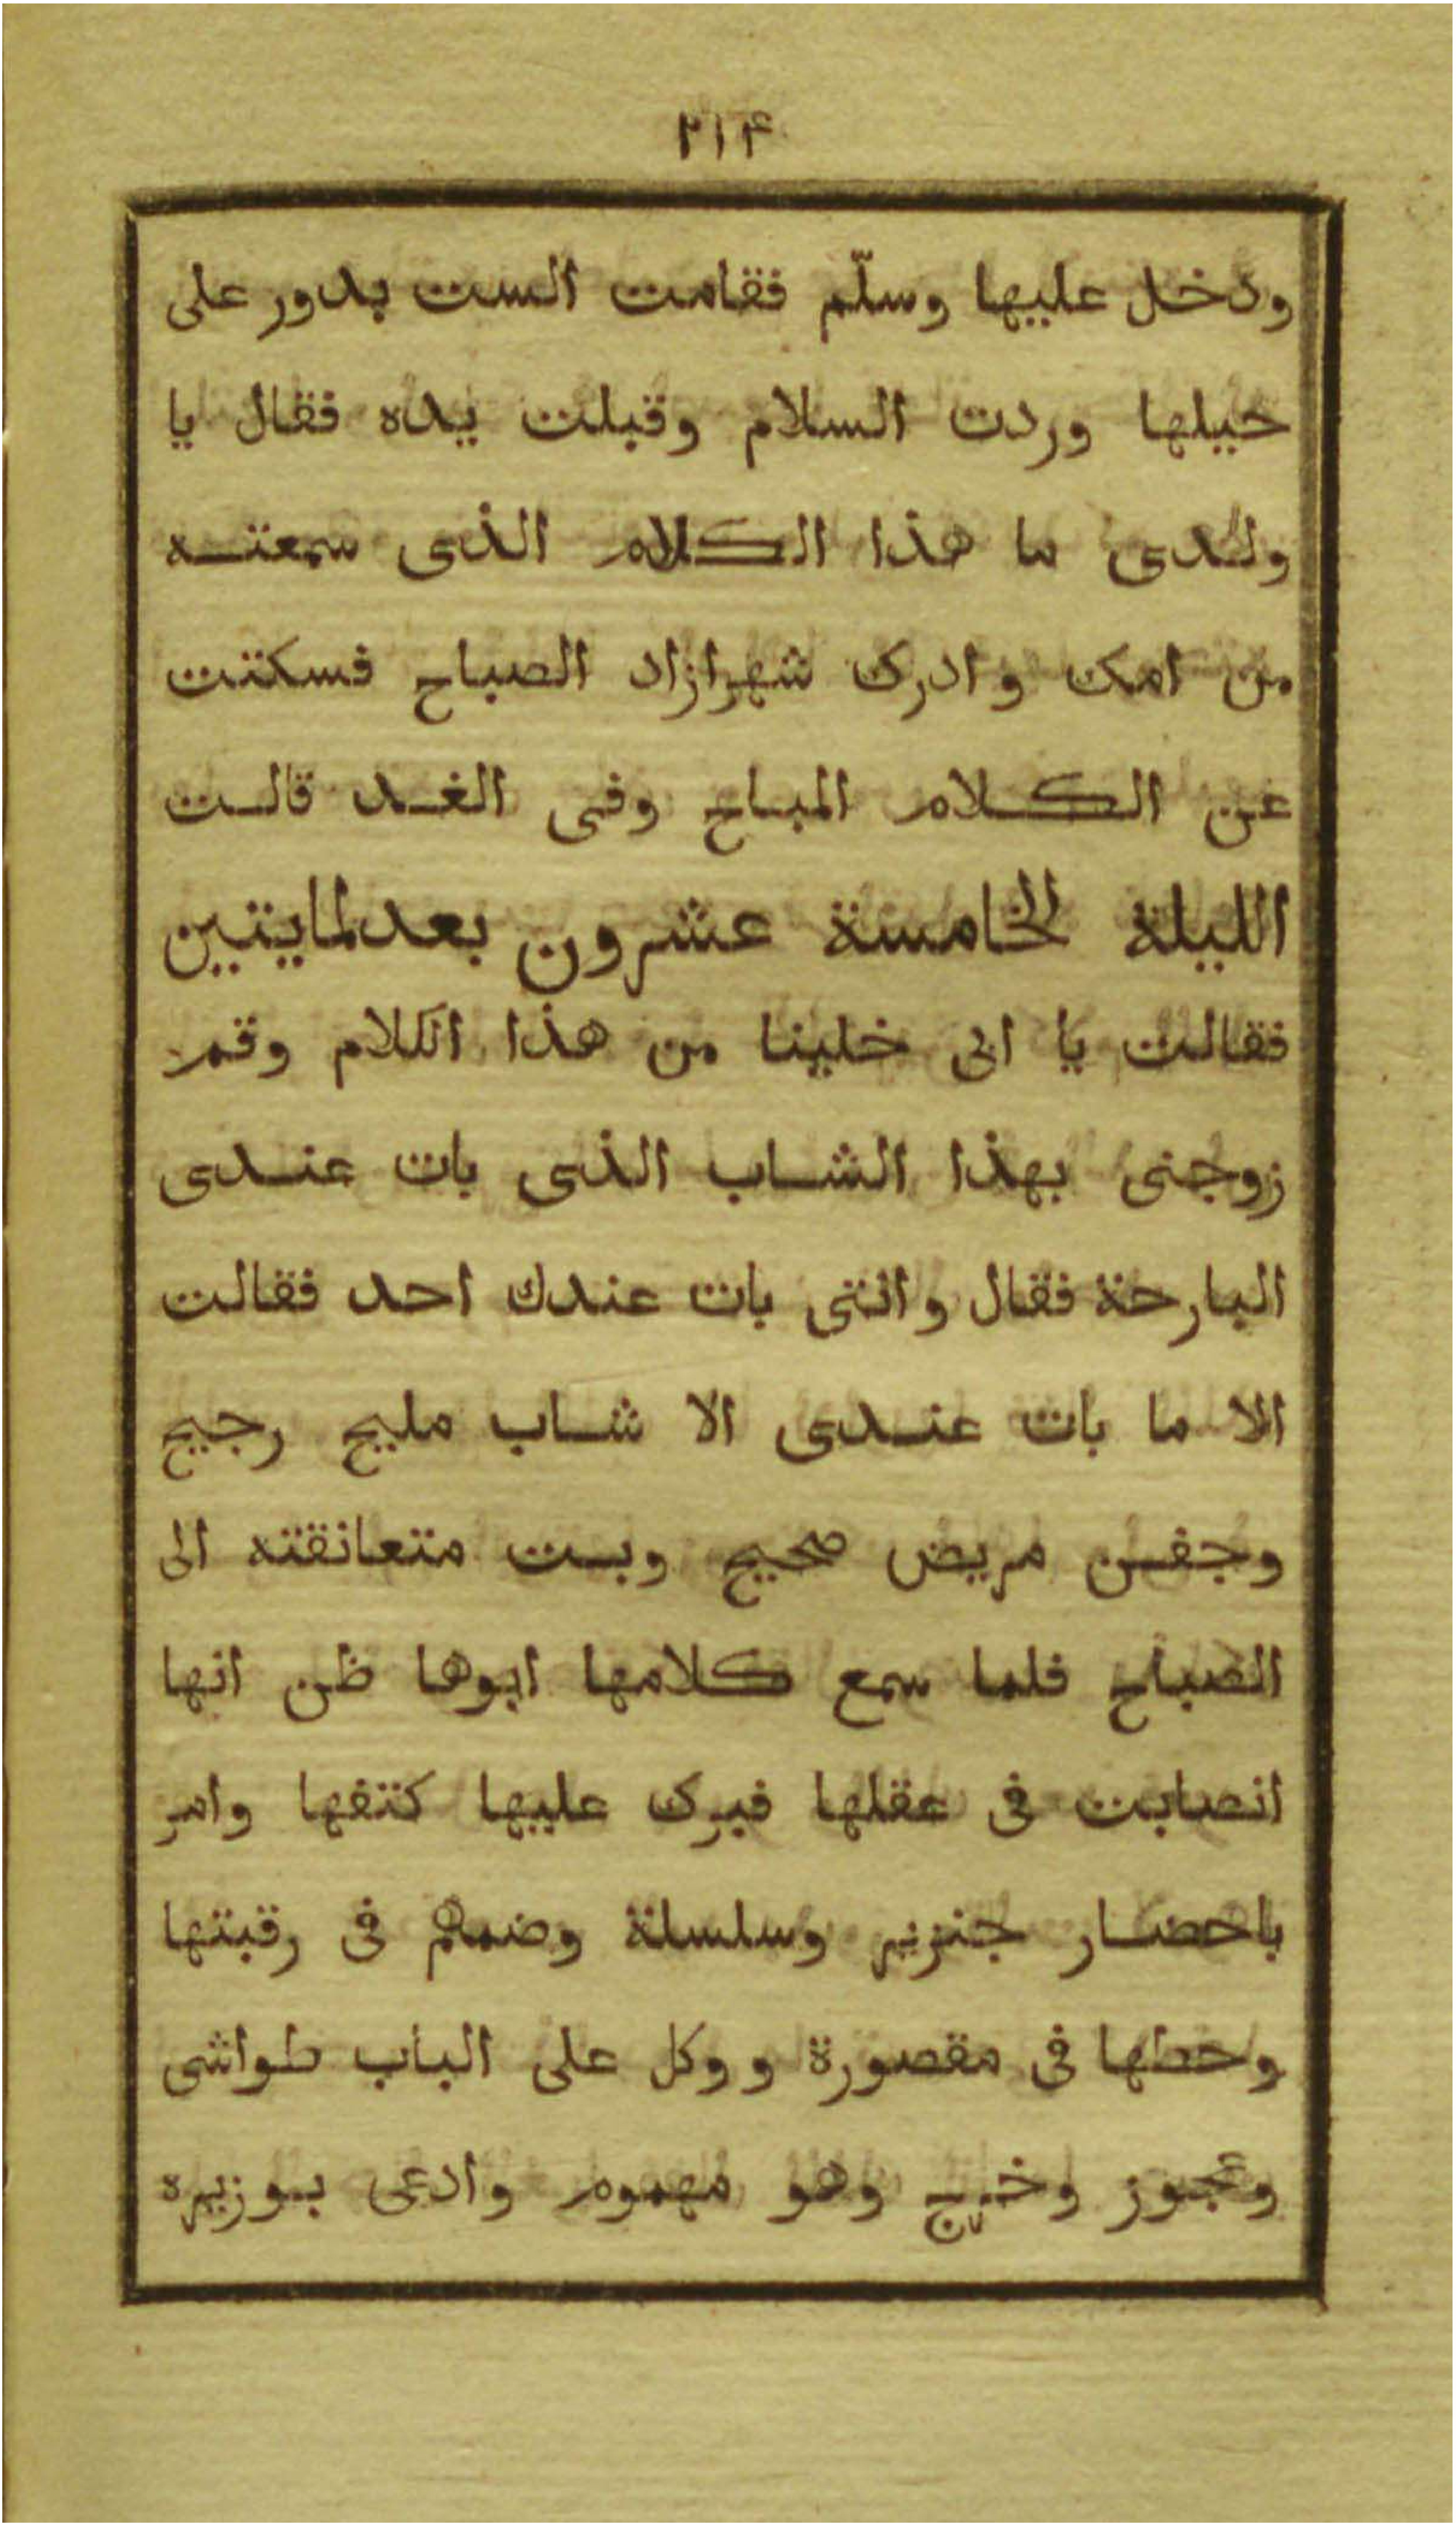 ٢١۴
ودخل عليها وسلّم فقامت الست بدور على
حيلها وردت السلام وقبلت يده فقال يا
ولدى ما هذا الكلام الذى سمعته
من امك وادرك شهرازاد الصباح فسكتت
عن الكلام المباح وفى الغد قالت
الليلة الخامسة عشرون بعدلمايتين
فقالت يا ابى خلينا من هذا الكلام وقم
زوجنى بهذا الشاب الذى بات عندى
البارحة فقال وانتى بات عندك احد فقالت
الا ما بات عندى الا شاب مليح رجيح
وجفن مريض صحيح وبست متعانقته الى
الصباح فلما سمع كلامها ابوها ظن انها
انصابت فى عقلها فبرك عليها كتفها وامر
باحضار جنزير وسلسلة وضمهم فى رقبتها
وحطها فى مقصورة ووكل على الباب طواشى
وعجوز وخرج وهو مهموم وادعى بوزيره